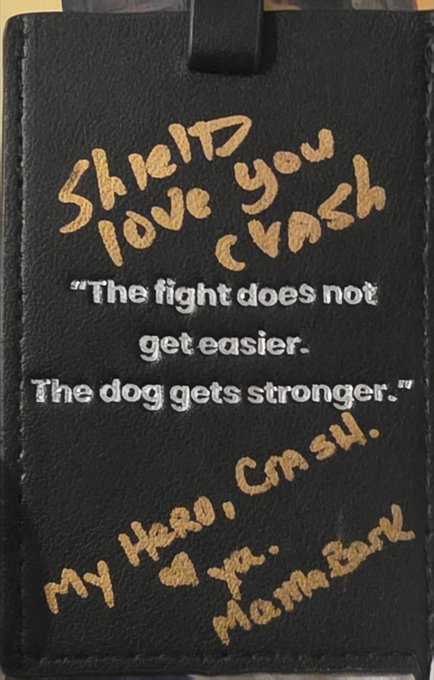 Shield
love you
crash
"The fight does not
get easier.
The dog gets stronger."
My Hero, Crash.
♥ ya.
Mama Bark